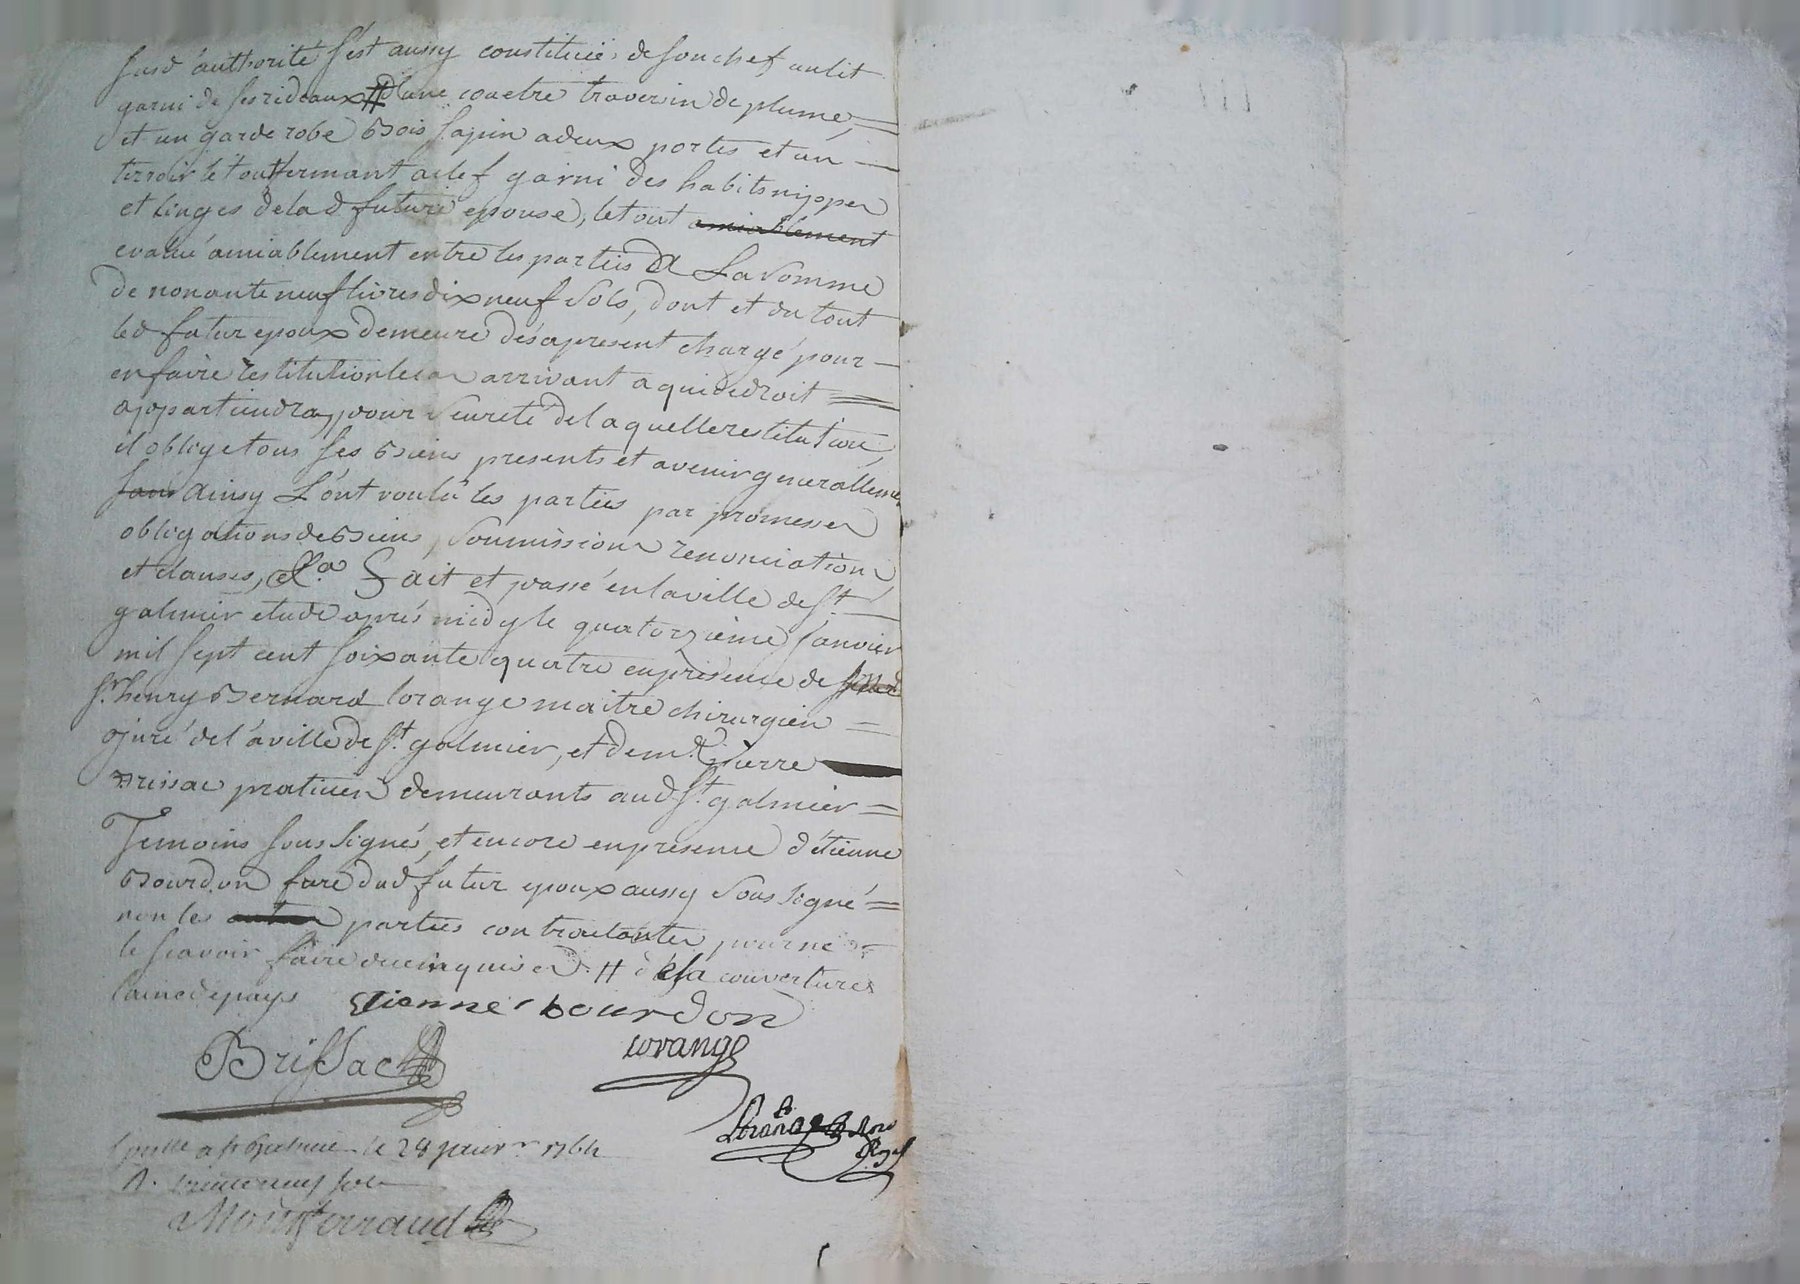 susd authorité s'est aussy constituée de son chef un lit
garni de ses rideaux # d'une couetre traversin de plume,
et un garde robe Bois sapin a deux portes et un
tirroir le tout fermant a clef garni des habits nippes
et Linges de lad future epouse, le tout amiablement
evalué amiablement entre les parties a La somme
de nonante neuf livres dix neuf sols, dont et du tout
led futur epoux demeure dés apresent chargé pour
en faire restitution le cas arrivant a qui de droit
appartiendra, pour seureté de laquelle restitution,
il oblige tous ses Biens presents et avenir generallement
sans Ainsy L'ónt voulû les parties par promesses
obligations de Biens, soumission renonciation
et clauses, &.a Fait et passé en la ville de St
galmier etude aprés midy le quatorzième Janvier
mil sept cent soixante quatre en presence de
Sr. hénry Bernard lorange maitre chirurgien
juré de la ville de St galmier, et de me. Pierre
Brissac praticien demeurants aud St galmier
Temoins sous signés, et encore en presence d'étienne
Bourdon frere dud futur epoux aussy sous signé
non les autres parties contractantes pour ne
le scavoir faire de ce enquises # de sa couverture
laine de pays
Etienne bourdon
BrisSac
lorange
Not Royal
a St Galmier le 28 janvr. 1764
R. trente neuf sols
Montferraud